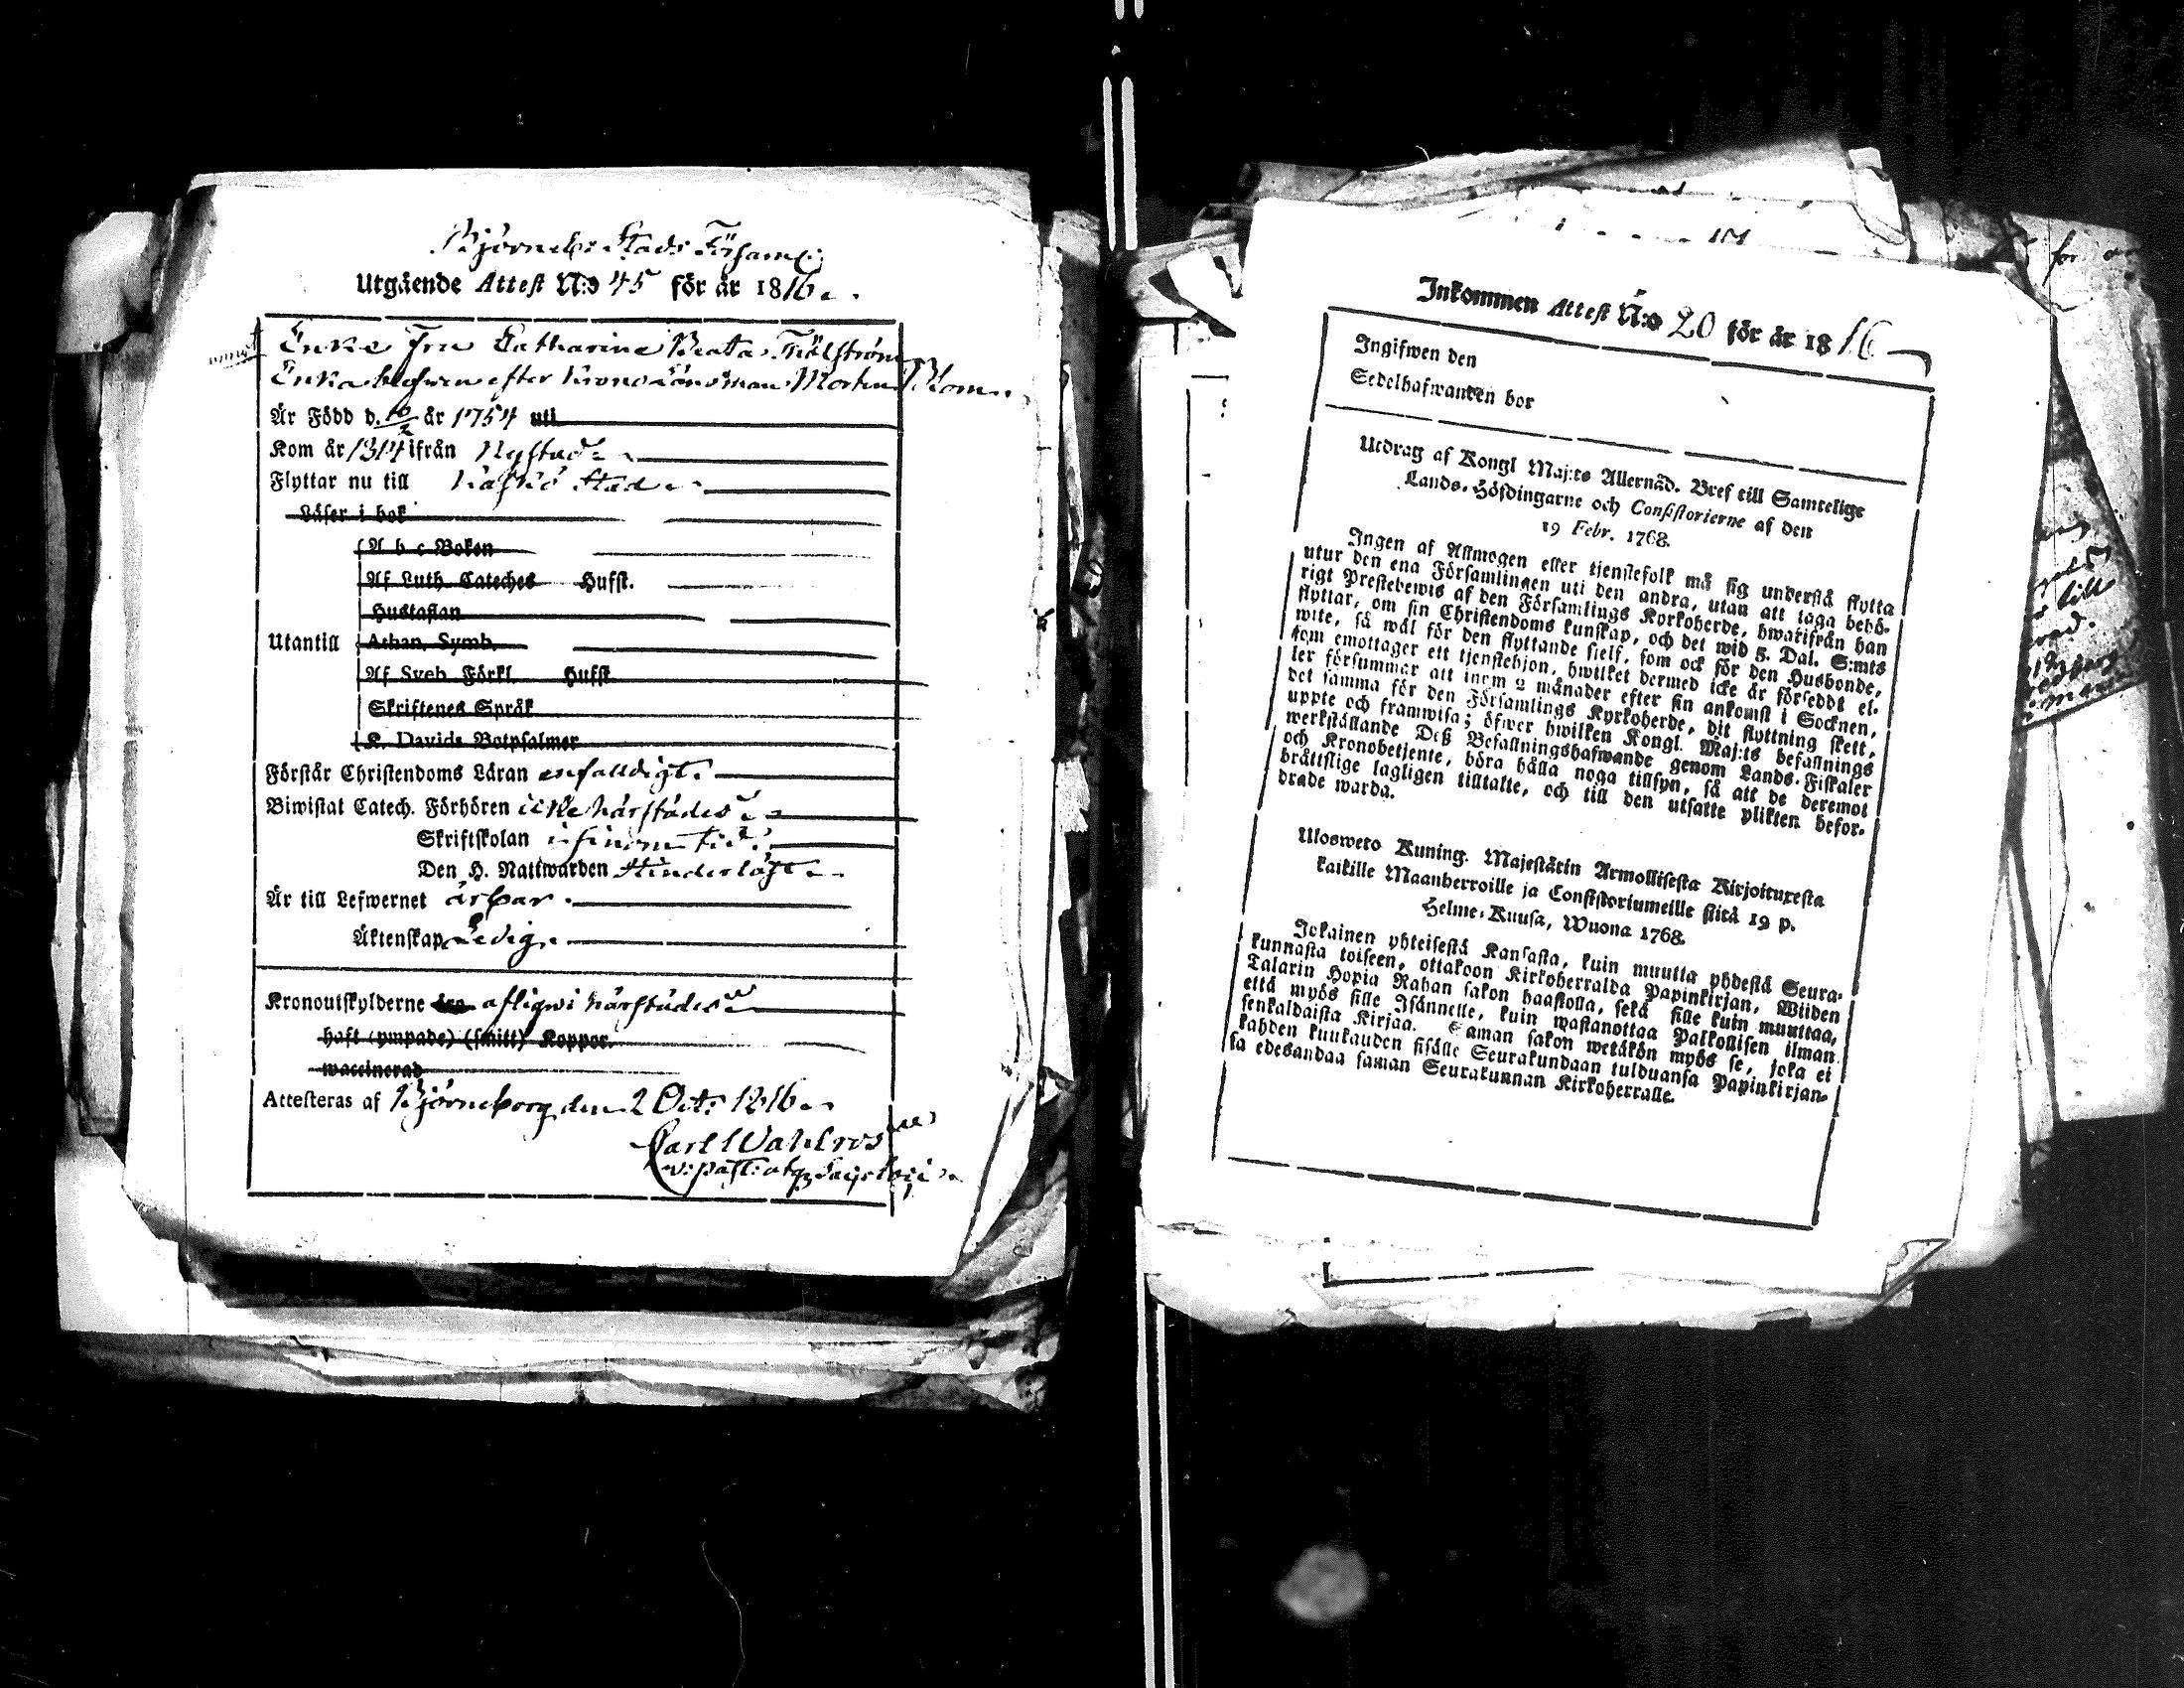 Björneb: Stads Församl:
Utgående Attest N:o 45 för år 1816.
Enke Fru Catharina Beata Fiälström
Enka blefwen efter Krono Länsman Morten Blom.
Är Född d. år 1754 uti
Kom år 1814 ifrån Nystad
Flyttar nu till Kaskö Stad
Läser i bok
A b c Boken
Af Luth. Cateches Hufst.
Hustaflan
Utantill Athan. Symb.
Af Sveb. Förkl. Hufst.
Skriftenes Språk
K. Davids Botpsalmer
Förstår Christendoms Läran enfalldigt.
Biwistat Catech. Förhören icke härstädes
Skriftskolan i sinom tid.
Den H. Nattwarden
Är till Lefwernet ärbar.
Äktenskap Ledig.
Kronoutskylderne härstädes
haft (ympade) (smitt) Koppor.
waccinerad
Attesteras af Björneborg den 2 Oct: 1816.
Carl Wahlroos
Inkommen Attest N:o 20 för år 1816
Ingifwen den
Sedelhafwanden bor
Utdrag af Kongl Maj:ts Allernåd. Bref till Samtelige
Lands-Höfdingarne och Consistorierne af den
19 Febr. 1768.
Ingen af Allmogen eller tjenstefolk må sig understå flytta
utur den ena Församlingen uti den andra, utan att taga behö-
rigt Prestebewis af den Församlings Kyrkoherde, hwarifrån han
flyttar, om sin Christendoms kunskap, och det wid 5. Dal. S:mts
wite, så wäl för den flyttande sielf, som ock för den Husbonde,
som emottager ett tjenstehjon, hwilket dermed icke är förseddt el-
ler försummar att inom 2 månader efter sin ankomst i Socknen,
det samma för den Församlings Kyrkoherde, dit flyttning skett,
uppte och framwisa; öfwer hwilken Kongl. Maj:ts befallnings
werkställande Deß Befallningshafwande genom Lands-Fiskaler
och Kronobetjente, böra hålla noga tillsyn, så att de deremot
bråttslige lagligen tilltalte, och till den utsatte plikten befor-
drade warda.
Ulosweto Kuning. Majestätin Armollisesta Kirjoituxesta
kaikille Maanherroille ja Consistoriumeille siitä 19 p.
Helme-Kuusa, Wuona 1768.
Jokainen yhteisestä Kansasta, kuin muutta yhdestä Seura-
kunnasta toiseen, ottakoon Kirkoherralda Papinkirjan, Wiiden
Talarin Hopia Rahan sakon haastolla, sekä sille kuin muuttaa,
että myös sille Isännelle, kuin wastanottaa Palkollisen ilman
senkaldaista Kirjaa. Saman sakon wetäkön myös se, joka ei
kahden kuukauden sisälle Seurakundaan tulduansa Papinkirjan-
sa edesandaa saman Seurakunnan Kirkoherralle.